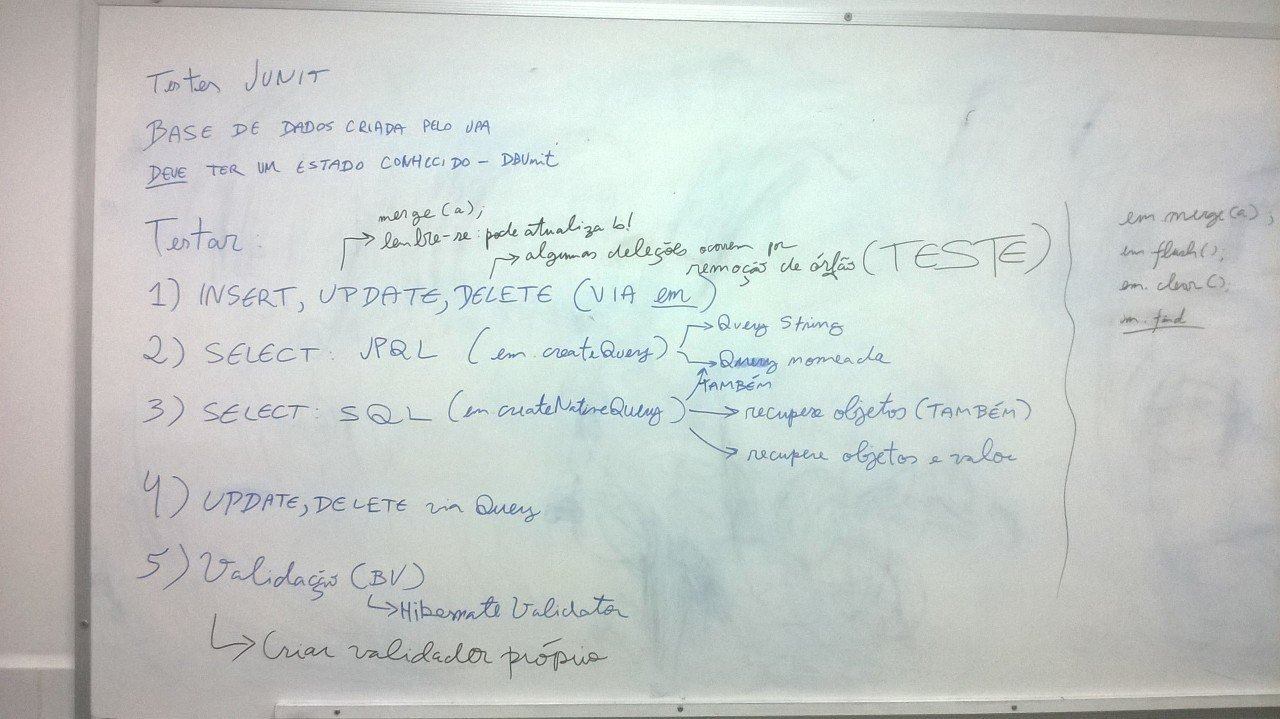 Testes JUNIT
BASE DE DADOS CRIADA PELO JPA
DEVE TER UM ESTADO CONHECIDO - DBUnit
Testar:
merge(a);
lembre-se: pode atualiza b!
algumas deleções ocorrem por
remoção de órfão (TESTE)
1) INSERT, UPDATE, DELETE (VIA em)
2) SELECT: JPQL (em.createQuery)
Query String
Query nomeada
TAMBÉM
3) SELECT: SQL (em createNativeQuery)
recupere objetos (TAMBÉM)
recupere objetos e valor
4) UPDATE, DELETE via Query
5) Validação (BV)
Hibernate Validator
Criar validador próprio
em merge(a);
em flush();
em. clear();
em. find